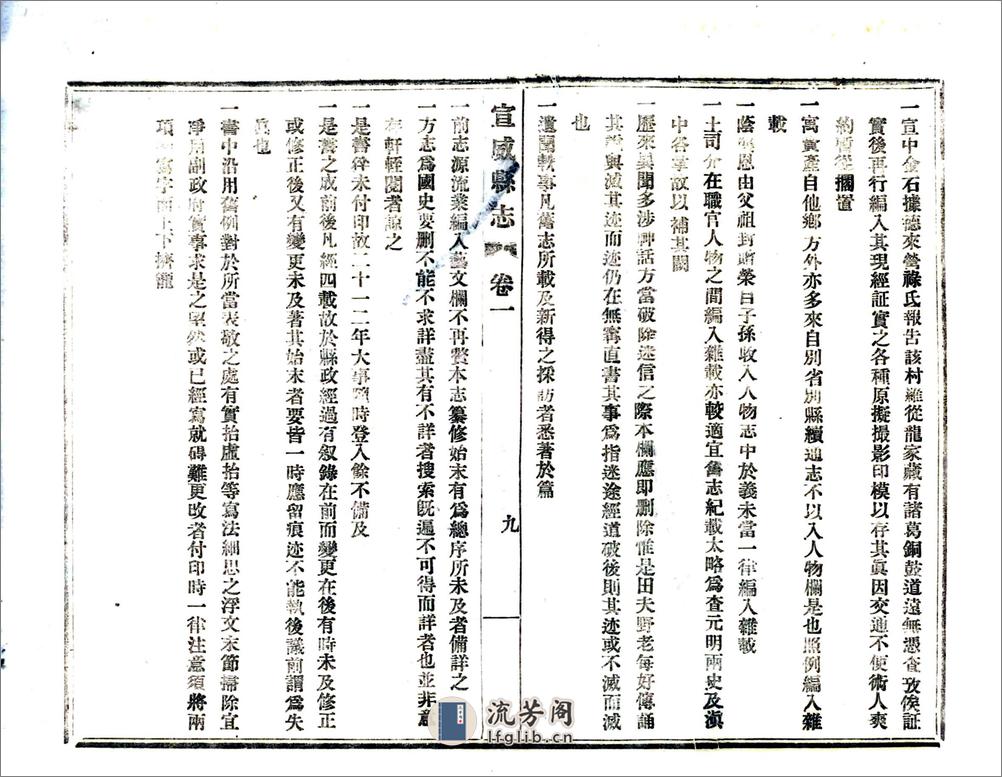 一宣中金石據德來營祿氏報告該村難從龍家藏有諸葛銅鼓道遠無憑查攷俟証
實後再行編入其現經証實之各種原擬撮影印模以存其眞因交通不便術人爽
約暫從擱置
一寓賢產自他鄉方外亦多來自別省別縣續通志不以入人物欄是也照例編入雜
載
一蔭襲恩由父祖封贈榮自子孫收入人物志中於義未當一律編入雜載
一土司介在職官人物之間編入雜載亦較適宜舊志紀載太略爲查元明兩史及滇
中各掌故以補其闕
一歷來異聞多涉神話方當破除迷信之際本欄應即删除惟是田夫野老每好傳誦
其說與滅其迹而迹仍在無寗直書其事爲指迷途經道破後則其迹或不滅而滅
也
一遺聞軼事凡舊志所載及新得之採訪者悉著於篇
宣威縣志 卷一 九
一前志源流業編入藝文欄不再贅本志纂修始末有爲總序所未及者備詳之
一方志爲國史要删不能不求詳盡其有不詳者搜索旣遍不可得而詳者也並非意
存軒輊閱者諒之
一是書從未付印故二十一二年大事隨時登入餘不備及
一是書之成前後凡經四載故於縣政經過有叙錄在前而變更在後有時未及修正
或修正後又有變更未及著其始末者要皆一時應留痕迹不能執後議前謂爲失
眞也
一書中沿用舊例對於所當表敬之處有實抬虛抬等寫法細思之浮文末節掃除宜
淨用副政府實事求是之望然或已經寫就碍難更改者付印時一律注意須將兩
項寫字面上下擠攏
流芳阁
lfglib.cn